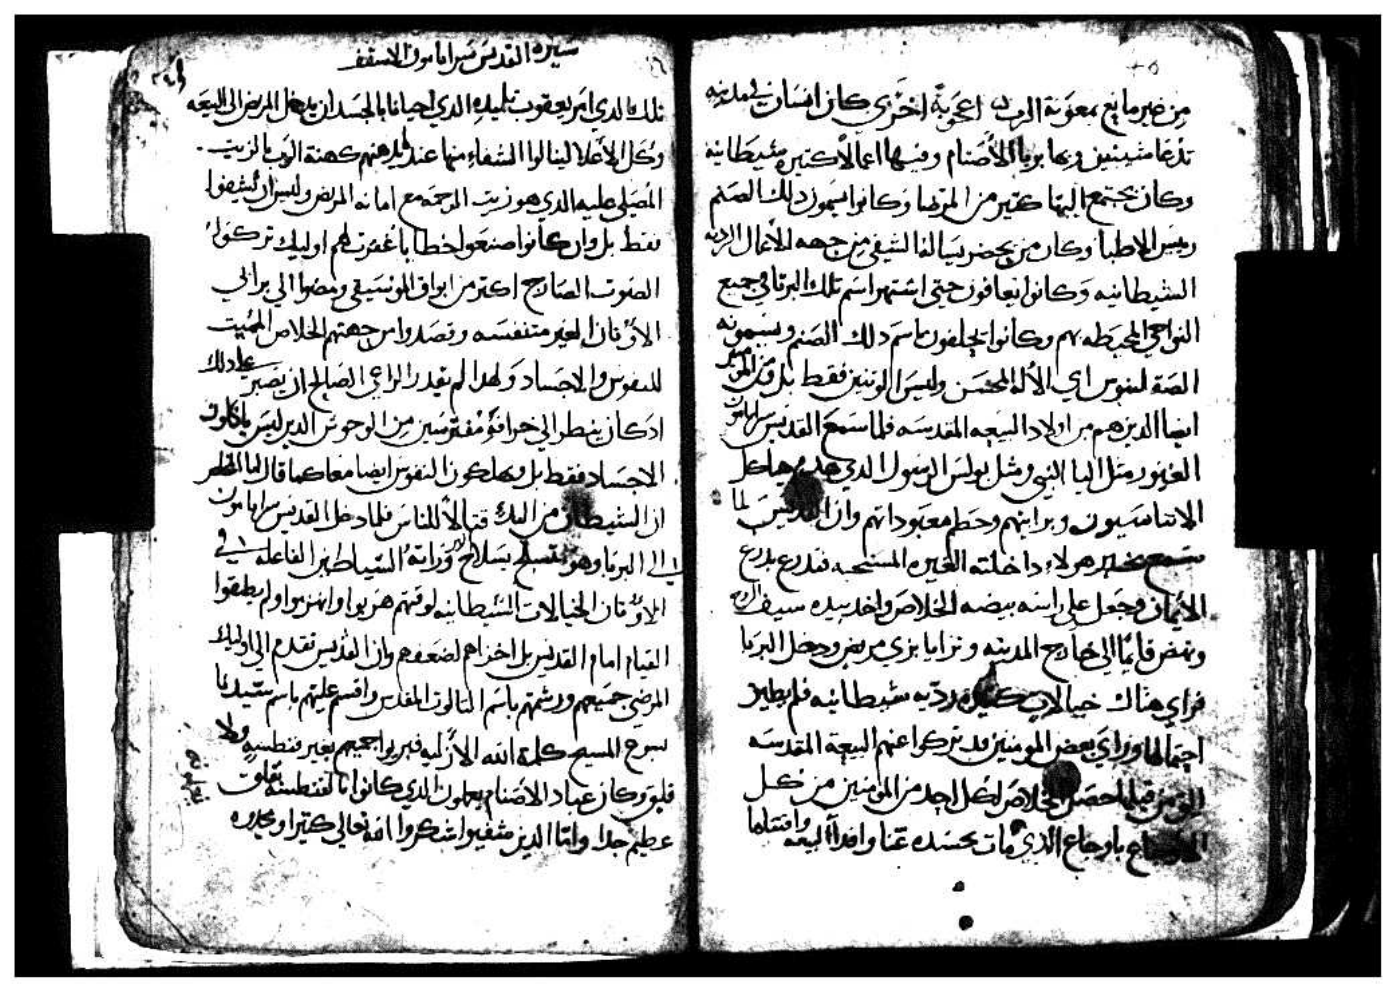 من غير مانع بمعونة الرب اعجوبة اخري كان انسان في مدينه
تدعا شينين وبها بربا الأصنام وفيها اعمالاً كتيره شيطانيه
وكان يجتمع اليها كتير من المرضا وكانوا يسمون ذلك الصنم
رييس الاطبا وكان من يحضر يساله الشفي من جهه الأعمال الرديه
الشيطانيه وكانوا يعافون حتي اشتهر اسم تلك البربا في جميع
النواحي المحيطه بهم وكانوا يحلفون باسم دلك الصنم ويسمونه
اي الأله المحسن وليس الوتنين فقط بل ومن المومنين
ايضا الدين هم من اولاد البيعه المقدسه فلما سمع القديس سرابامون
الغيور مثل ايليا النبي ومثل بولس الرسول الدي هدم هياكل
وبرابيهم وحطم معبوداتهم وان القديس لما
سمع بخبر هولاء داخلته الغيره المسيحيه فتدرع بدرع
الأيمان وجعل علي راسه بيضه الخلاص واخد بيده سيف الروح
ونهض قايمًا الي خارج المدينه وتزايا بزي مريض ودخل البربا
فراي هناك خيالات كتيره رديه شيطانيه فلم يطيق
احتمالها وراي بعض المومنين قد تركوا عنهم البيعة المقدسه
التي من قبلها حصل الخلاص لكل احد من المومنين من كل
الاوجاع باوجاع الذي مات بجسده عنا وافدا البيعه واقتناها
سيرة القديس سرابامون الاسقف
تلك الدي امر يعقوب تلميده الدي احيانا بالجسد ان يدخل المريض الي البيعه
وكل الأعلا لينالوا الشفاء منها عند يدهنهم كهنة الرب بالزيت
المصلي عليه الدي هو زيت الرحمه مع امانه المريض وليس ان يشفوا
فقط بل وان كانوا صنعوا خطايا غفرت لهم اوليك تركوا
الصوت الصارخ اكتر من ابواق الموسيقي ومضوا الي برابي
الأوثان الغير متنفسه وقصدوا من جهتهم الخلاص المميت
للنفوس والاجساد ولهدا لم يقدر الراعي الصالح ان يصبر علي دلك
اد كان ينظر الي خرافه مفترسين من الوحوش الدين ليس ياكلون
الاجساد فقط بل ويهلكون النفوس ايضا معا كما قال
ان الشيطان من البدء قتالاً للناس فلما دخل القديس سرابامون
الي البربا وهو متسلح بسلاح ورايه الشياطين الفاعله في
الأوثان الخيالات الشيطانيه لوقتهم هربوا وانهزموا ولم يطيقوا
القيام امام القديس بل اخزاهم لضعفهم وان القديس تقدم الي اوليك
المرضي جميعهم ورشمهم باسم التالوت المقدس واقسم عليهم باسم سيدنا
يسوع المسيح كلمة الله الأزليه فبريوا جميعهم بغير فنطسيه ولا
قلبق وكان عباد الاصنام يعملون الدي كانوا بقلوت
عظيم جدا واما الدين شفيوا شكروا الله تعالي كتيرا ومجدوه